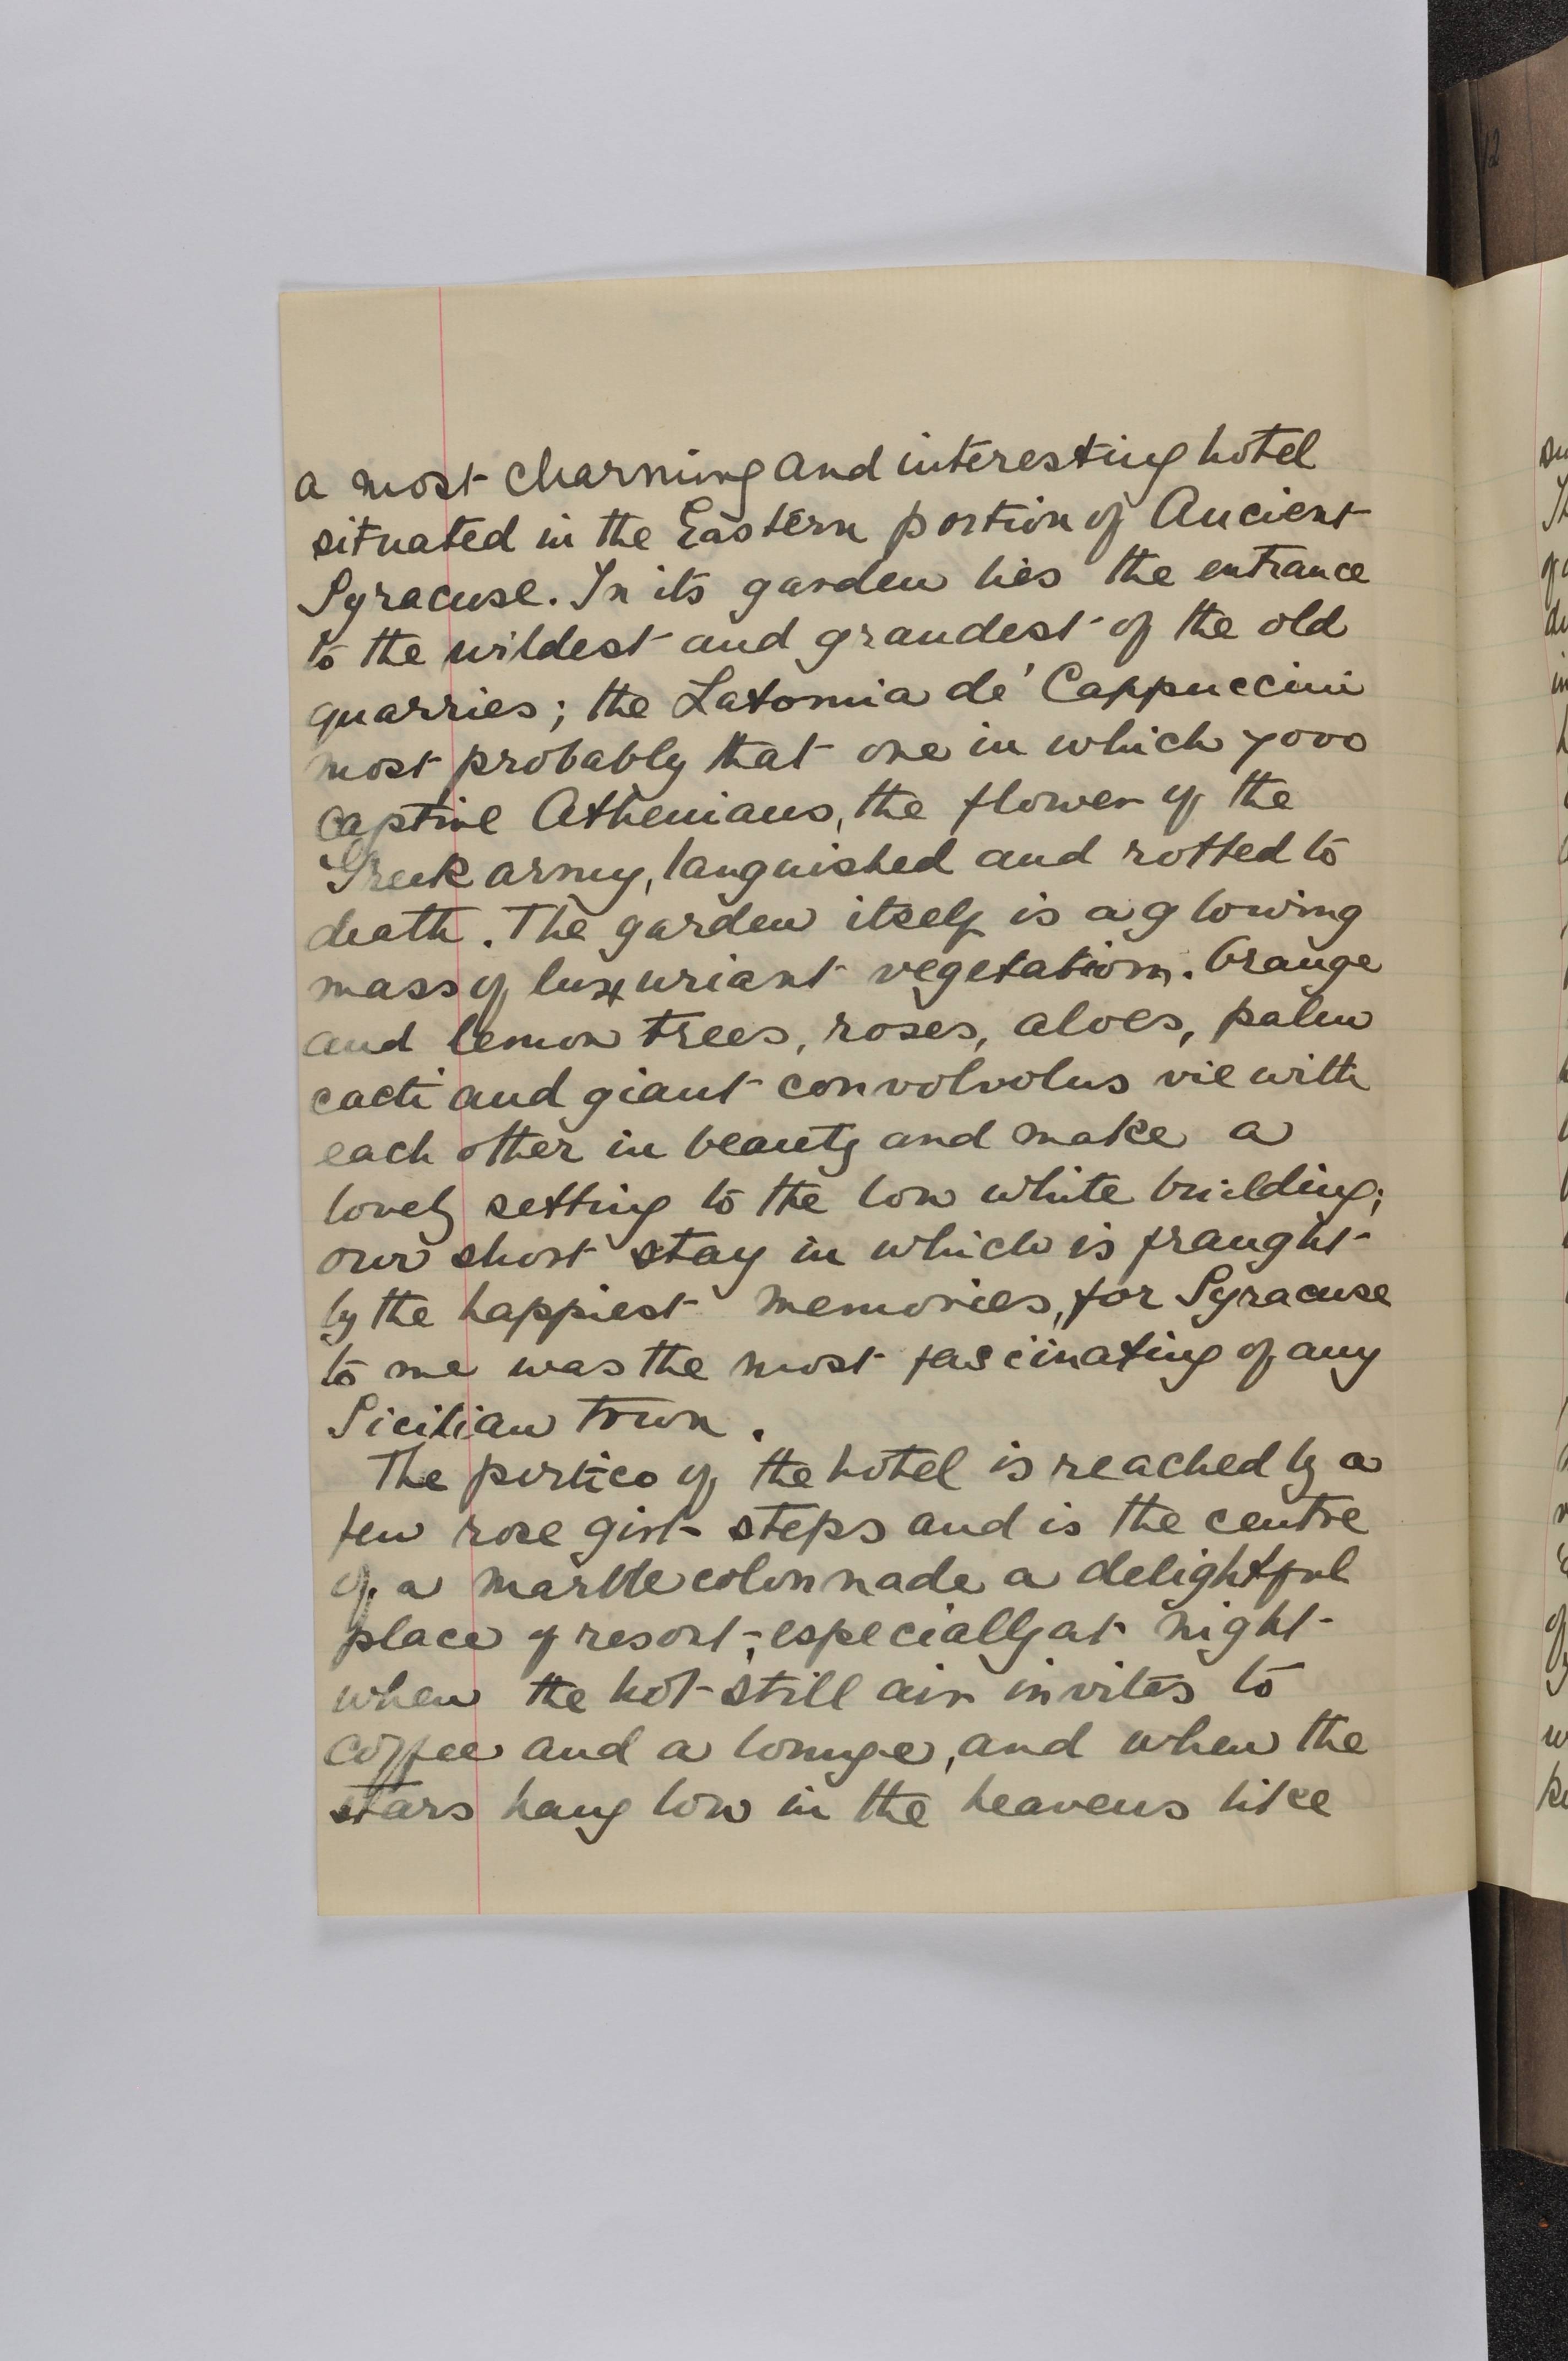 a most charming and interesting hotel
situated in the Eastern portion of Ancient
Syracuse. In its garden lies the entrance
to the wildest and grandest of the old
quarries; the Latomia de' Cappuccini
most probably that one in which 7000
captive Athenians, the flower of the
Greek army, languished and rotted to
death. The garden itself is a glowing
mass of luxuriant vegetation. Orange
and lemon trees, roses, aloes, palm
cacti and giant convolvolus vie with
each other in beauty and make a
lovely setting to the low white building;
our short stay in which is fraught
by the happiest memories, for Syracuse
to me was the most fascinating of any
Sicilian town.
The portico of the hotel is reached by a
few rose girt steps and is the centre
of a marble colonnade a delightful
place of resort, especially at night
when the hot still air invites to
coffee and a lounge, and when the
stars hang low in the heavens like